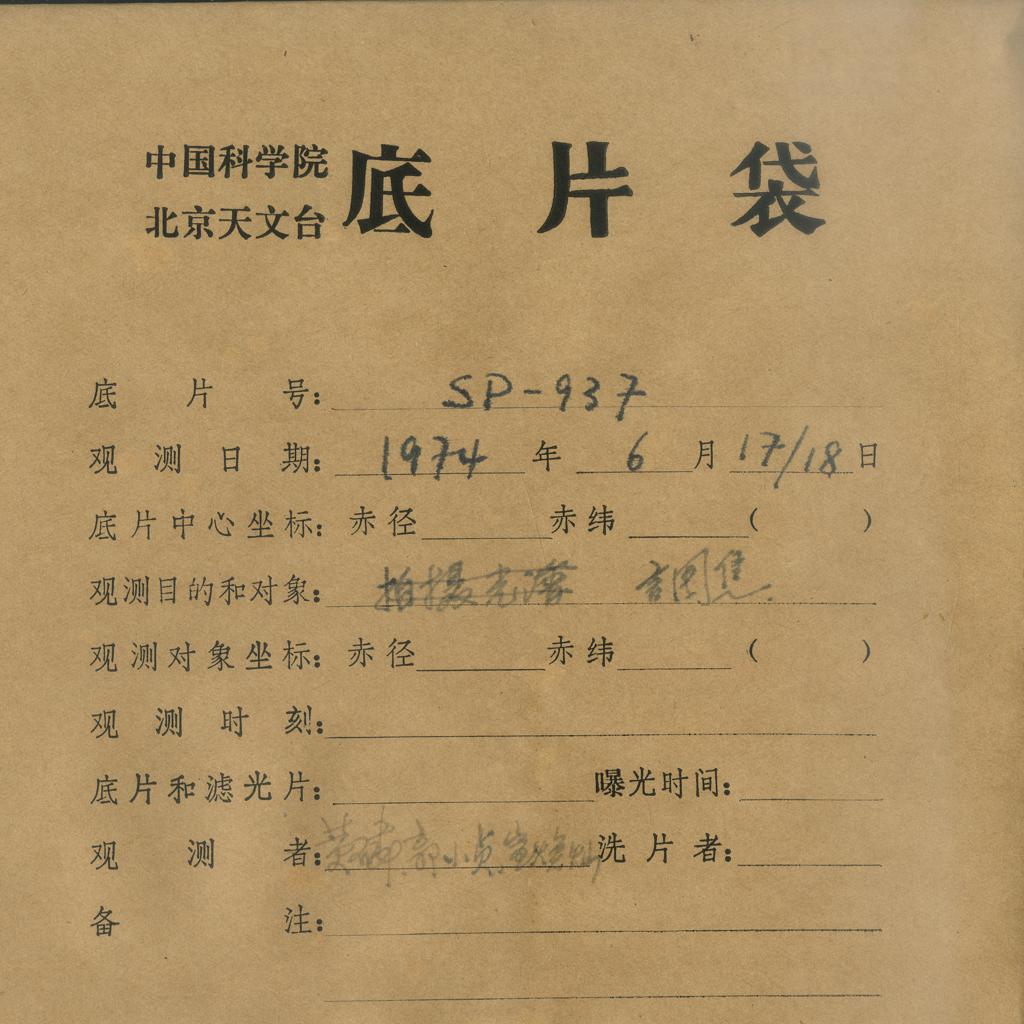 中国科学院
北京天文台
底片袋
底片号: SP-937
观测日期: 1974年6月17/18日
底片中心坐标: 赤径 赤纬 ( )
观测目的和对象: 拍摄光谱 调焦.
观测对象坐标: 赤径 赤纬 ( )
观测时刻:
底片和滤光片: 曝光时间:
观测者: 黄磷 小贞 洗片者:
备注: